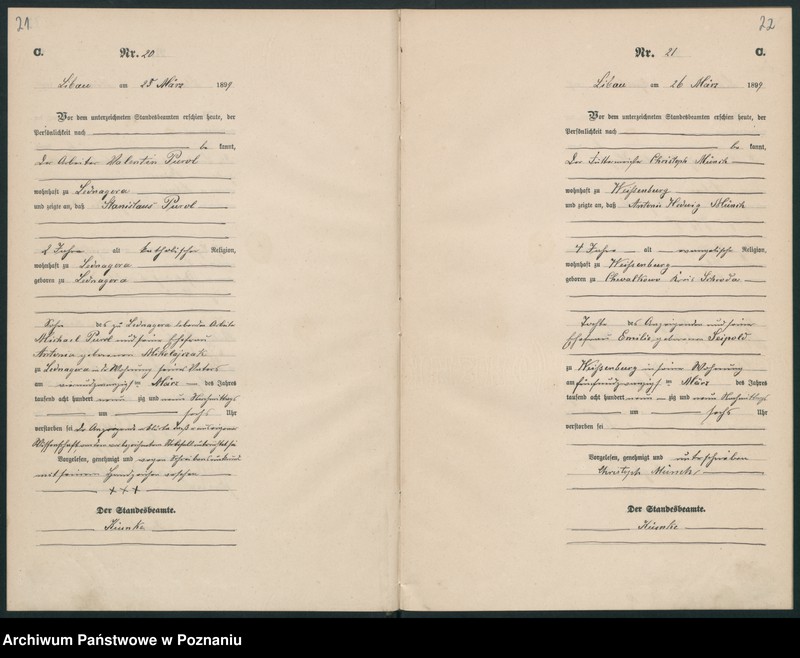 21
C.
Nr. 20
Libau am 25 März 1899
Vor dem unterzeichneten Standesbeamten erschien heute, der
Persönlichkeit nach
be kannt,
Der Arbeiter Valentin Purol
wohnhaft zu Lednagora
und zeigte an, daß Stanislaus Purol
2 Jahre alt katholischer Religion,
wohnhaft zu Lednagora
geboren zu Lednagora
Sohn des zu Lednagora lebenden Arbeiter
Michael Purol und seine Ehefrau
Antonia geborenen Mikolajczak
zu Lednagora in der Wohnung seines Vaters
am vierundzwanzigsten März des Jahres
tausend acht hundert neun zig und neun Nachmittags
um sechs Uhr
verstorben sei der Anzeigende erklärte daß er aus eigener
Wissenschaft von dem Sterbefall unterrichtet sei
Vorgelesen, genehmigt und wegen Schreibensunkunde
mit seinem Handzeichen versehen
+ + +
Der Standesbeamte.
22
Nr. 21
C.
Libau am 26 März 1899
Vor dem unterzeichneten Standesbeamten erschien heute, der
Persönlichkeit nach
be kannt,
Der Christoph Münch
wohnhaft zu Weißenburg
und zeigte an, daß Hedwig Münch
4 Jahre alt evangelische Religion,
wohnhaft zu Weißenburg
geboren zu Chwalkowo Kreis Schroda
Tochter des Anzeigenden und seiner
Ehefrau Emilie geborenen Leipold
zu Weißenburg in seiner Wohnung
am fünfundzwanzigsten März des Jahres
tausend acht hundert neun zig und neun Nachmittags
um sechs Uhr
verstorben sei
Vorgelesen, genehmigt und unterschrieben
Christoph Münch
Der Standesbeamte.
Archiwum Państwowe w Poznaniu